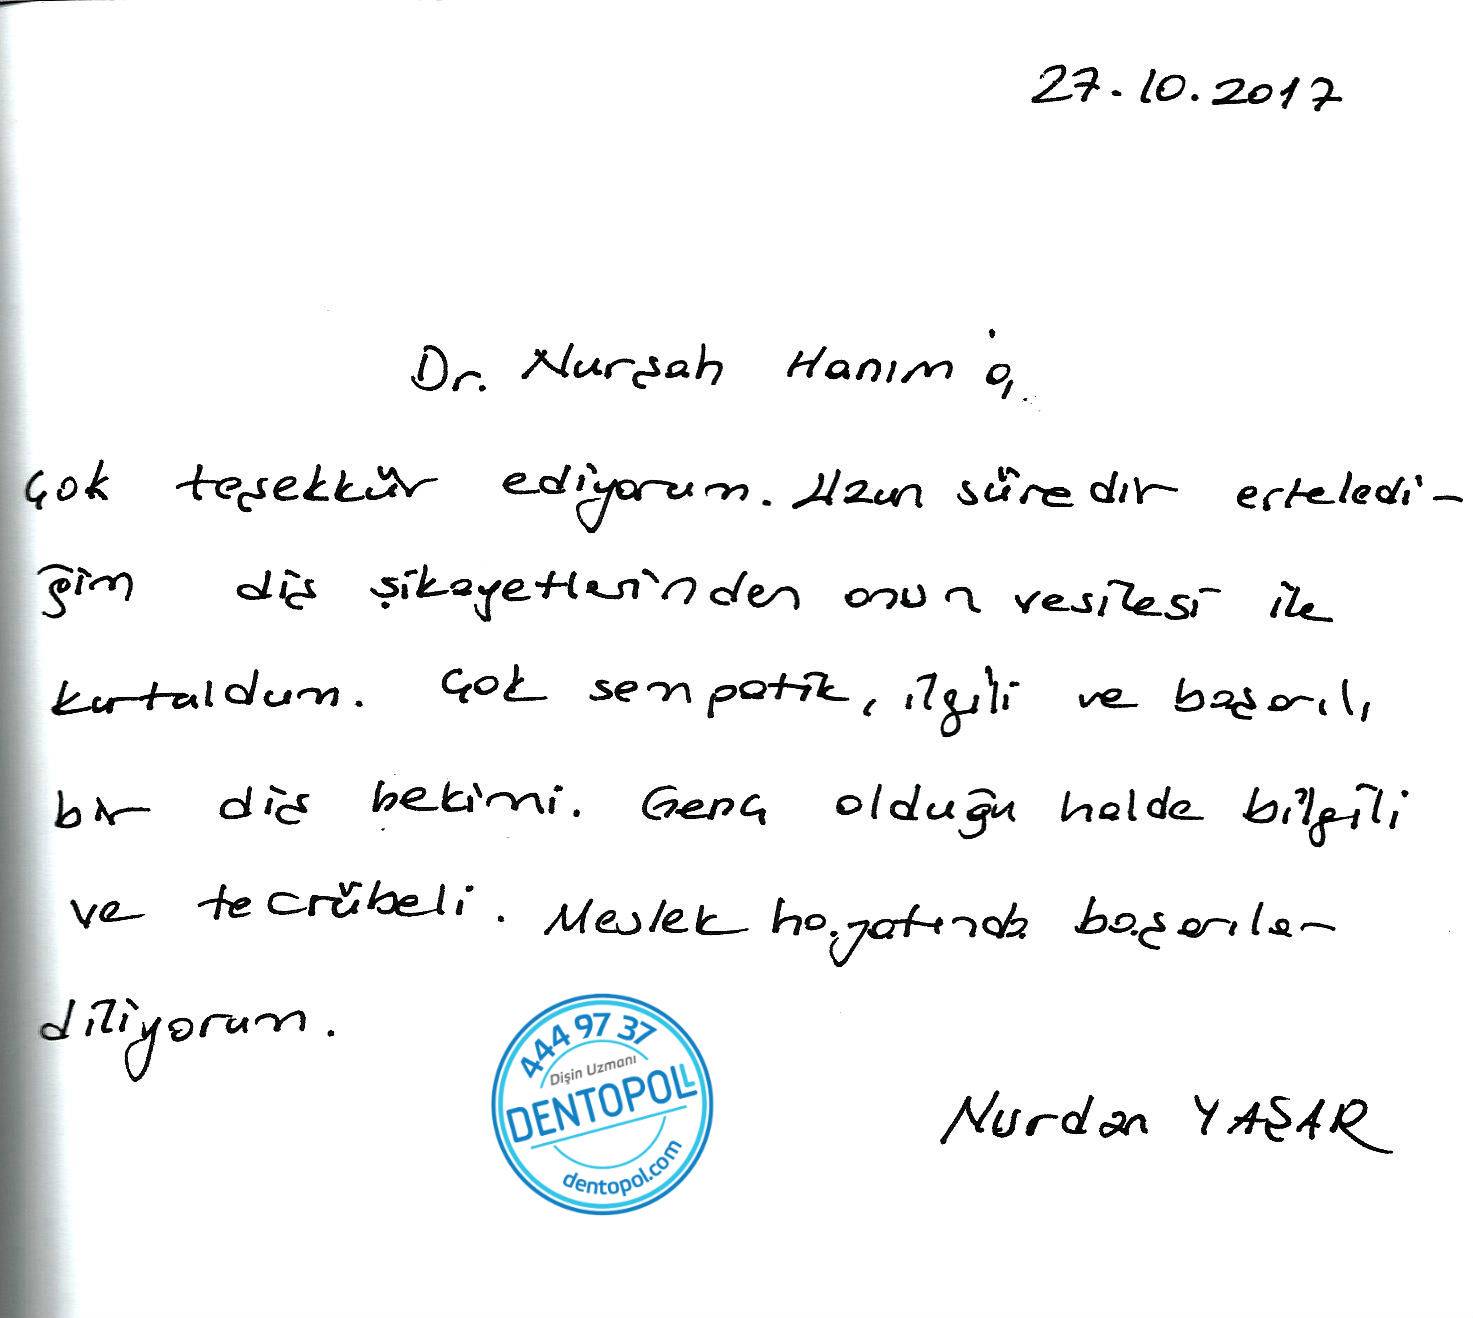 27.10.2017
Dr. Nurşah Hanım'a,
Çok teşekkür ediyorum. Uzun süredir erteledi-
ğim diş şikayetlerinden onun vesilesi ile
kurtuldum. Çok sempatik, ilgili ve başarılı
bir diş hekimi. Genç olduğu halde bilgili
ve tecrübeli. Meslek hayatında başarılar
diliyorum.
444 97 37
Dişin Uzmanı
DENTOPOLL
dentopol.com
Nurdan YAŞAR